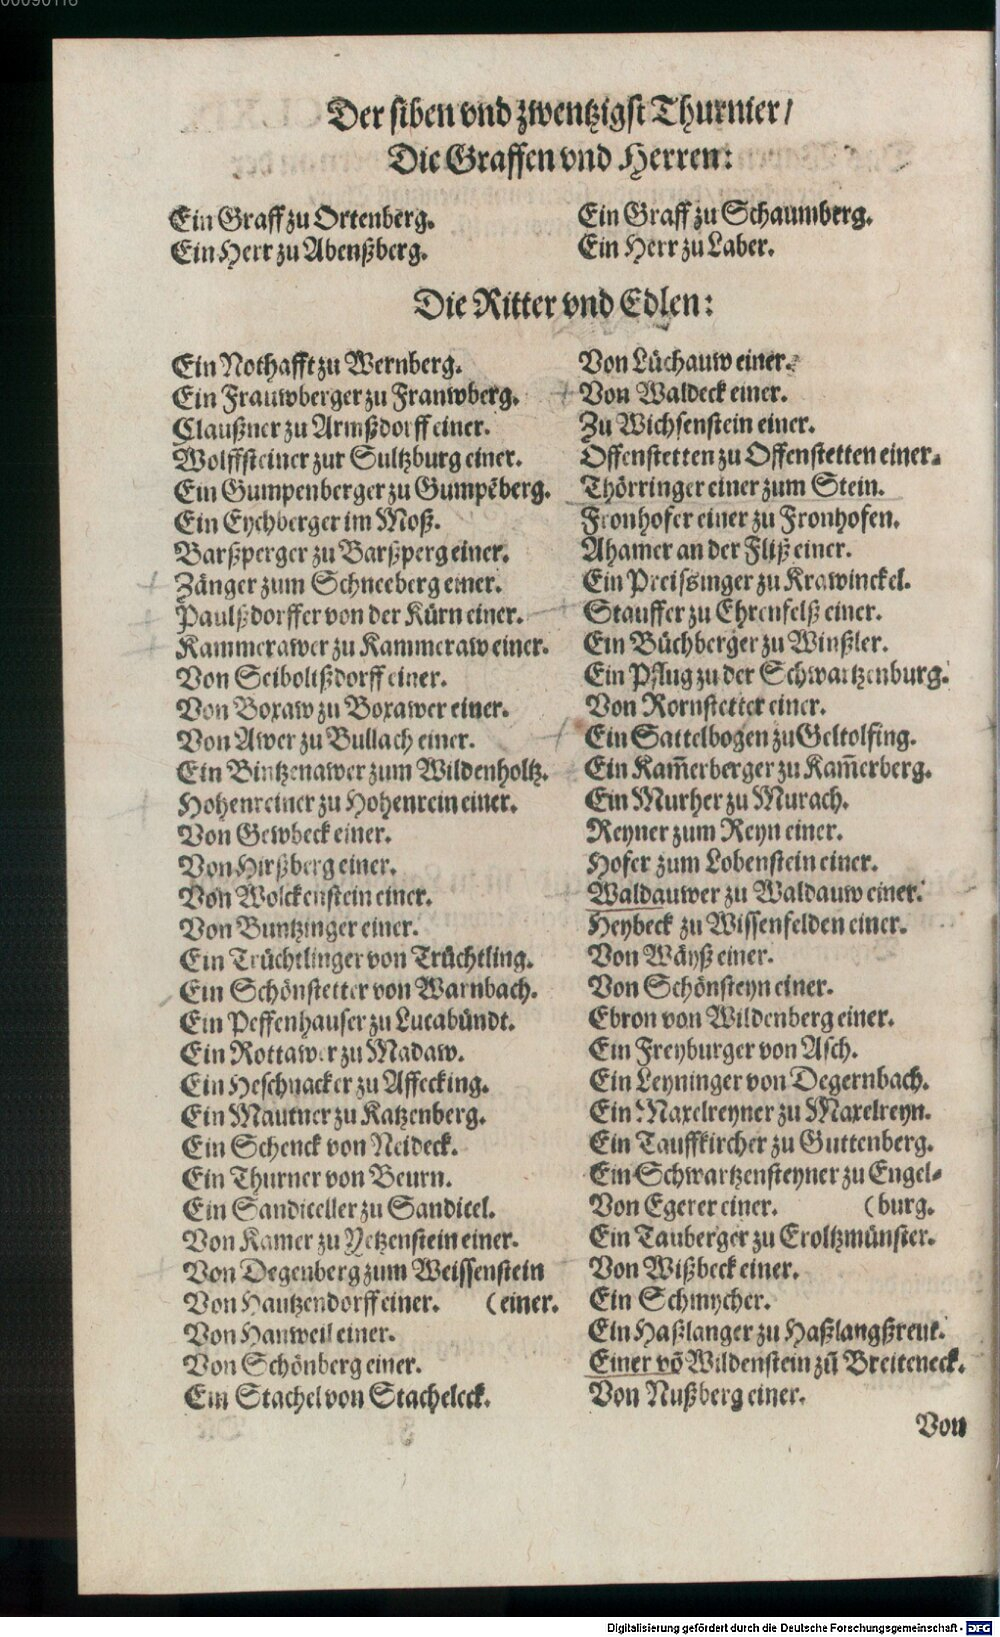 Der siben vnd zwentzigst Thurnier/
Die Graffen vnd Herren:
Ein Graff zu Ortenberg.
Ein Herr zu Abenßberg.
Ein Graff zu Schaumberg.
Ein Herr zu Laber.
Die Ritter vnd Edlen:
Ein Nothafft zu Wernberg.
Ein Frauwberger zu Franwberg.
Claußner zu Armßdorff einer.
Wolffsteiner zur Sultzburg einer.
Ein Gumpenberger zu Gumpēberg.
Ein Eychberger im Moß.
Barßperger zu Barßperg einer.
Zänger zum Schneeberg einer.
Paulßdorffer von der Kürn einer.
Kammerawer zu Kammeraw einer.
Von Seiboltßdorff einer.
Von Boxaw zu Boxawer einer.
Von Awer zu Bullach einer.
Ein Bintzenawer zum Wildenholtz.
Hohenreiner zu Hohenrein einer.
Von Gewbeck einer.
Von Hirßberg einer.
Von Wolckenstein einer.
Von Buntzinger einer.
Ein Trüchtlinger von Trüchtling.
Ein Schönstetter von Warnbach.
Ein Peffenhauser zu Lucabündt.
Ein Rottawer zu Madaw.
Ein Heschnacker zu Affecking.
Ein Mautner zu Katzenberg.
Ein Schenck von Neideck.
Ein Thurner von Beurn.
Ein Sandiceller zu Sandicel.
Von Kamer zu Yetzenstein einer.
Von Degenberg zum Weissenstein
Von Hautzendorff einer. (einer.
Von Hanweil einer.
Von Schönberg einer.
Ein Stachel von Stacheleck.
Von Lüchauw einer.
Von Waldeck einer.
Zu Wichsenstein einer.
Offenstetten zu Offenstetten einer.
Thörringer einer zum Stein.
Fronhofer einer zu Fronhofen.
Ahamer an der Fliß einer.
Ein Preissinger zu Krawinckel.
Stauffer zu Ehrenfelß einer.
Ein Büchberger zu Winßler.
Ein Pflug zu der Schwartzenburg.
Von Rornstetter einer.
Ein Sattelbogen zu Geltolfing.
Ein Kam̄erberger zu Kam̄erberg.
Ein Murher zu Murach.
Reyner zum Reyn einer.
Hofer zum Lobenstein einer.
Waldauwer zu Waldauw einer.
Heybeck zu Wissenfelden einer.
Von Wäyß einer.
Von Schönsteyn einer.
Ebron von Wildenberg einer.
Ein Freyburger von Asch.
Ein Leyninger von Degernbach.
Ein Maxelreyner zu Maxelreyn.
Ein Tauffkircher zu Guttenberg.
Ein Schwartzensteyner zu Engel-
Von Egerer einer. (burg.
Ein Tauberger zu Eroltzmünster.
Von Wißbeck einer.
Ein Schmycher.
Ein Haßlanger zu Haßlangßreut.
Einer vō Wildenstein zū Breiteneck.
Von Nußberg einer.
Von
Digitalisierung gefördert durch die Deutsche Forschungsgemeinschaft - DFG